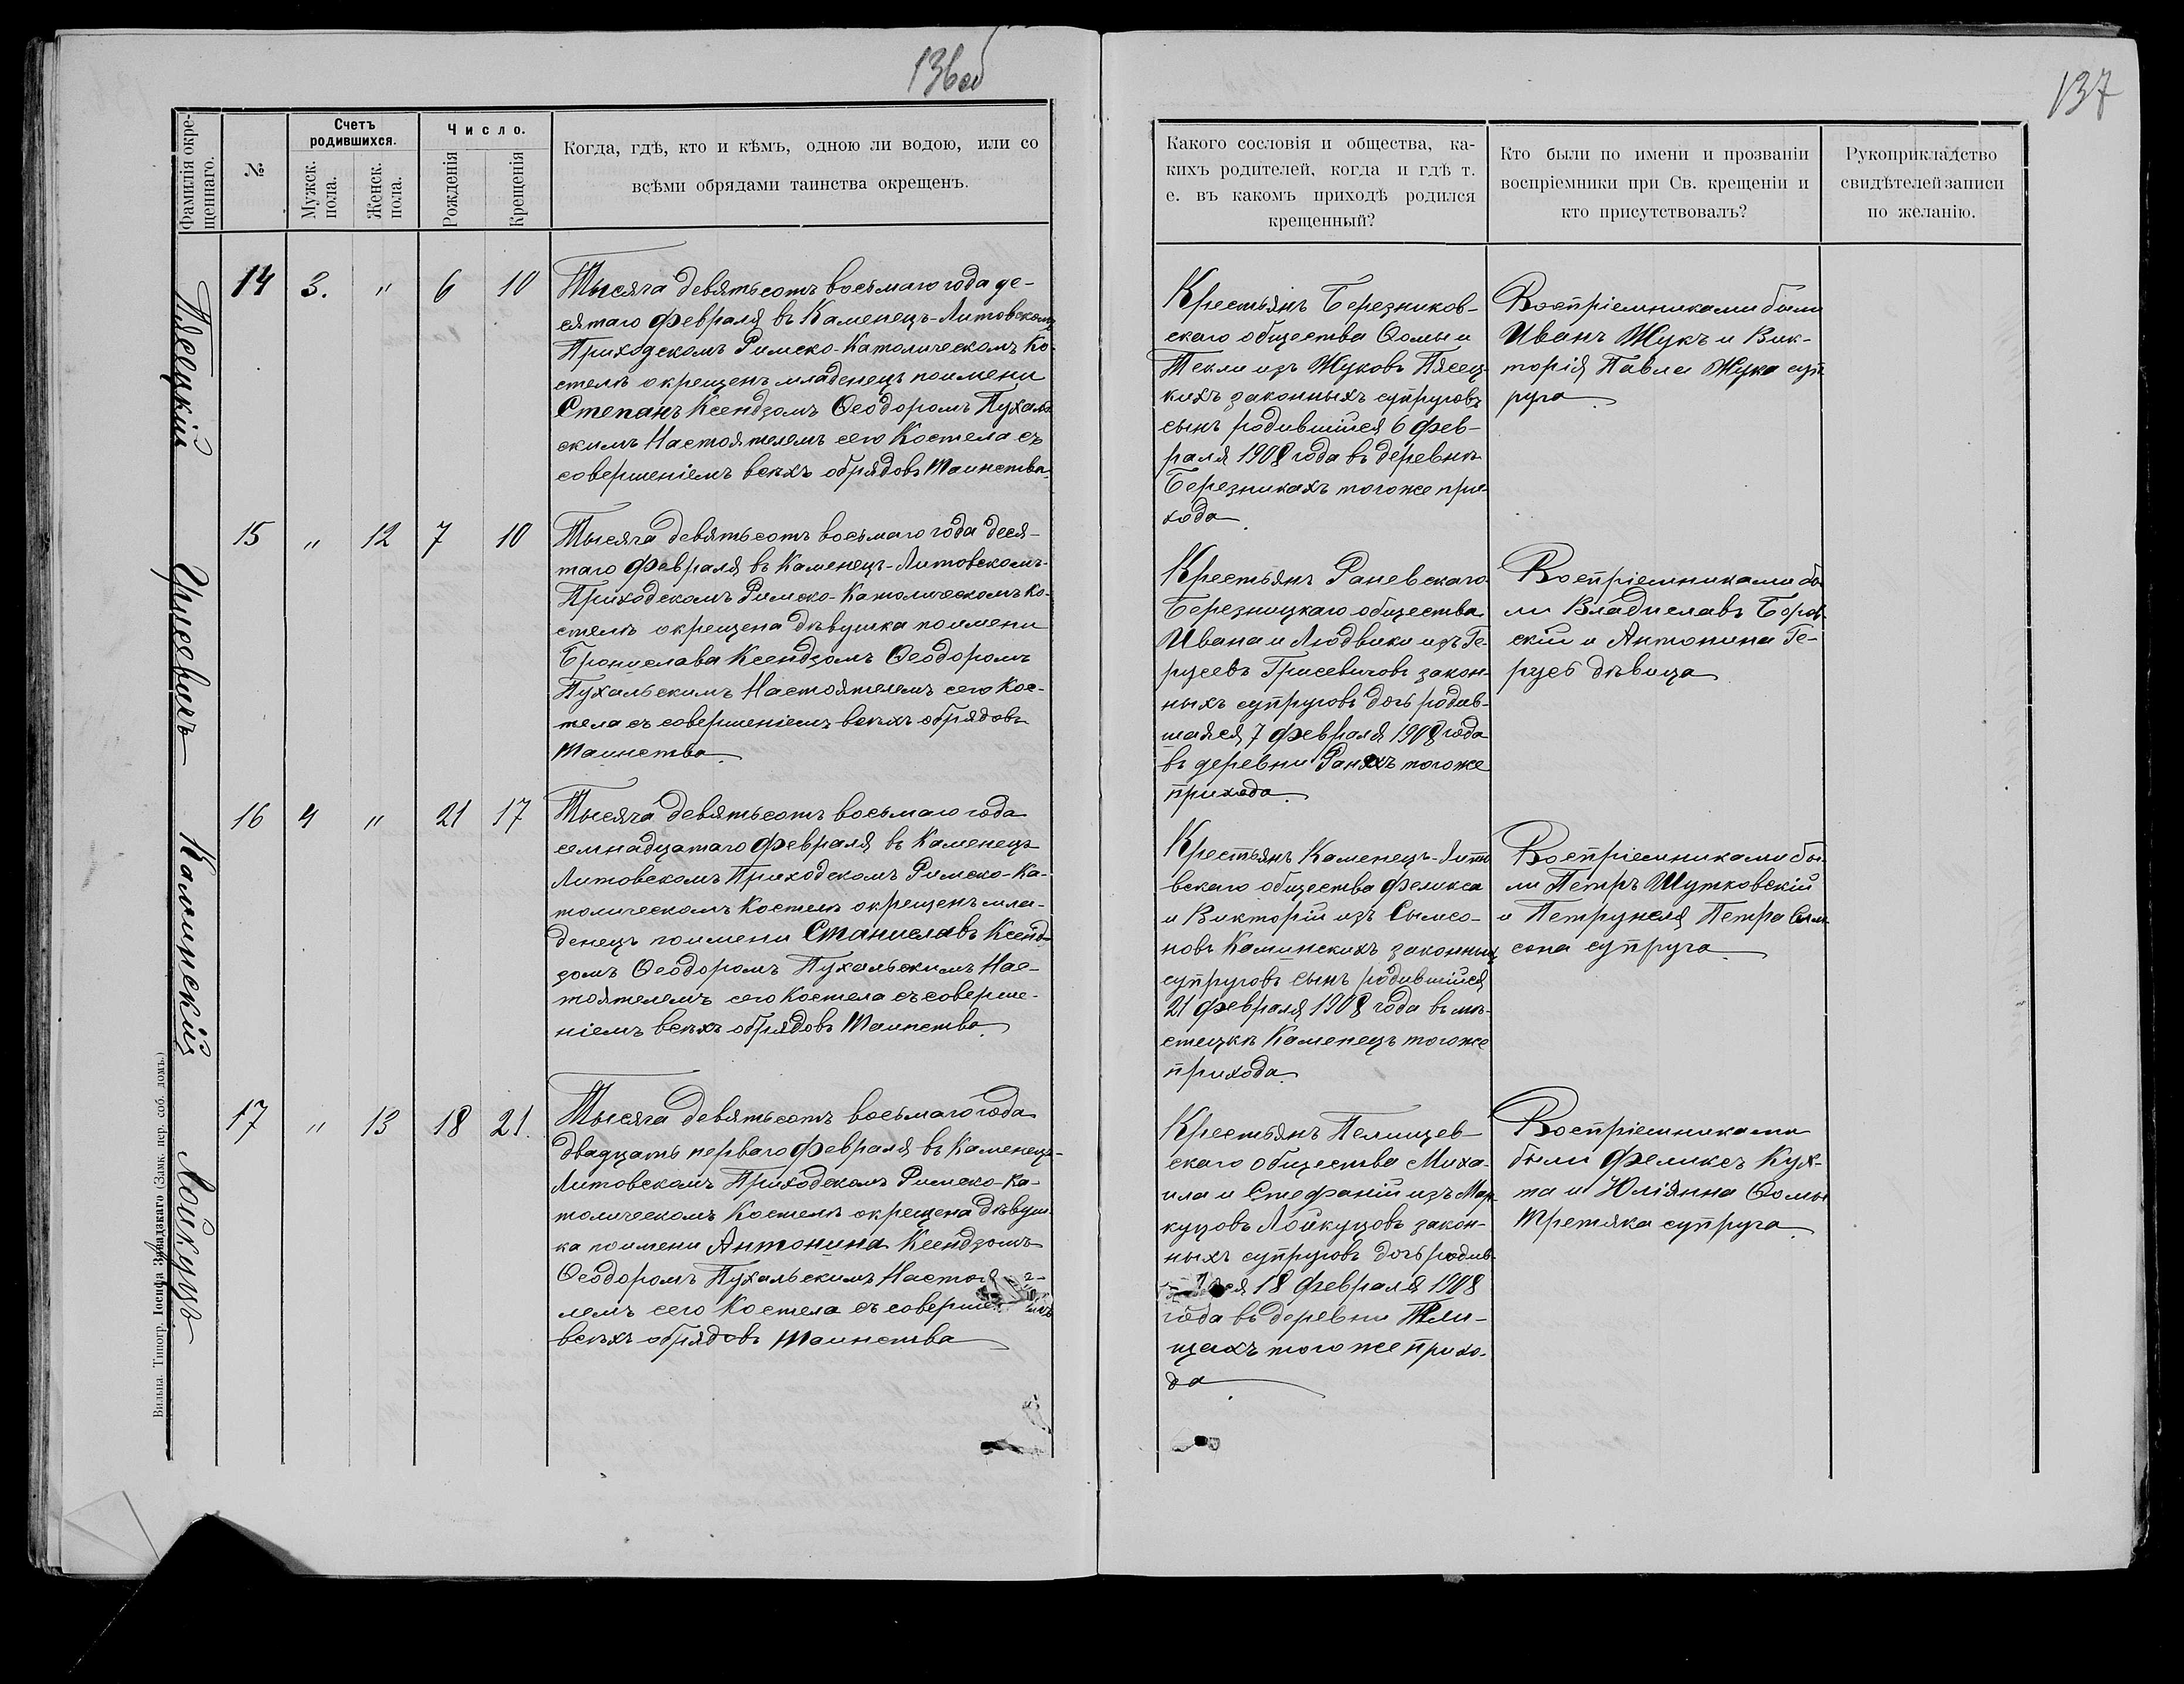 136об
137
Фамилія окре-
щеннаго.
№
Счетъ
родившихся.
Мужск.
пола.
Женск.
пола.
Число.
Рожденія
Крещенія
Когда, гдѣ, кто и кѣмъ, одною ли водою, или со
всѣми обрядами таинства окрещенъ.
Какого сословія и общества, ка-
кихъ родителей, когда и гдѣ т.
е. въ какомъ приходѣ родился
крещенный?
Кто были по имени и прозваніи
воспріемники при Св. крещеніи и
кто присутствовалъ?
Рукоприкладство
свидѣтелей записи
по желанію.
Пясецкій
14 3. " 6 10
Тысяча девятьсотъ восьмаго года де-
сятаго февраля въ Каменецъ-Литовскомъ
Приходскомъ Римско-Католическомъ Ко-
стелѣ окрещенъ младенецъ поимени
Степанъ Ксендзомъ Ѳеодоромъ Пухаль
скимъ Настоятелемъ сего Костела съ
совершеніемъ всѣхъ обрядовъ Таинства.
Крестьянъ Березников-
скаго общества Ѳомы и
Текли изъ Жуковъ Пясец-
кихъ законныхъ супруговъ
сынъ родившійся 6 фев-
раля 1908 года въ деревнѣ
Березникахъ тогоже при-
хода.
Воспріемниками были
Иванъ Жукъ и Вик-
торія Павла Жука суп
руга.
Грисевичъ
15 " 12 7 10
Тысяча девятьсотъ восьмаго года деся-
таго февраля въ Каменецъ-Литовскомъ
Приходскомъ Римско-Католическомъ Ко-
стелѣ окрещена дѣвушка поимени
Бронислава Ксендзомъ Ѳеодоромъ
Пухальскимъ Настоятелемъ сего Кос-
тела съ совершеніемъ всѣхъ обрядовъ
Таинства.
Крестьянъ Раневскаго
Березницкаго общества
Ивана и Людвики изъ Ге-
русевъ Грисевичовъ закон-
ныхъ супруговъ дочь родив-
шаяся 7 февраля 1908 года
въ деревни Раняхъ тогоже
прихода.
Воспріемниками бы
ли Владиславъ Боров-
скій и Антонина Ге-
русъ дѣвица
Каминскій
16 4 " 21 17
Тысяча девятьсотъ восьмаго года
семнадцатаго февраля въ Каменецъ
Литовскомъ Приходскомъ Римско-Ка-
толическомъ Костелѣ окрещенъ мла-
денецъ поимени Станиславъ Ксенд-
зомъ Ѳеодоромъ Пухальскимъ Нас-
тоятелемъ сего Костела съ соверше-
ніемъ всѣхъ обрядовъ Таинства.
Крестьянъ Каменецъ-Лито
вскаго общества Феликса
и Викторіи изъ Сымсо-
новъ Каминскихъ законныхъ
супруговъ сынъ родившійся
21 февраля 1908 года въ мѣ-
стецкѣ Каменецъ тогоже
прихода.
Воспріемниками бы-
ли Петръ Шутковскій
и Петрунеля Петра Сым-
сона супруга.
Лойкуцъ
17 " 13 18 21.
Тысяча девятьсотъ восьмаго года
двадцать перваго февраля въ Каменецъ-
Литовскомъ Приходскомъ Римско-Ка-
толическомъ Костелѣ окрещена дѣвуш-
ка поимени Антонина Ксендзомъ
Ѳеодоромъ Пухальскимъ Настоя
лемъ сего Костела съ соверше
всѣхъ обрядовъ Таинства
Крестьянъ Пелищев-
скаго общества Миха-
ила и Стефаніи изъ Мар-
куцовъ Лойкуцовъ закон-
ныхъ супруговъ дочь родив-
ся 18 февраля 1908
года въ деревни Пели-
щахъ того же прихо-
да.
Воспріемниками
были Феликсъ Кух-
та и Юліянна Ѳомы
Третяка супруга.
Вильна. Типогр. Іосифа Завадзкаго (Замк. пер. соб. домъ.)